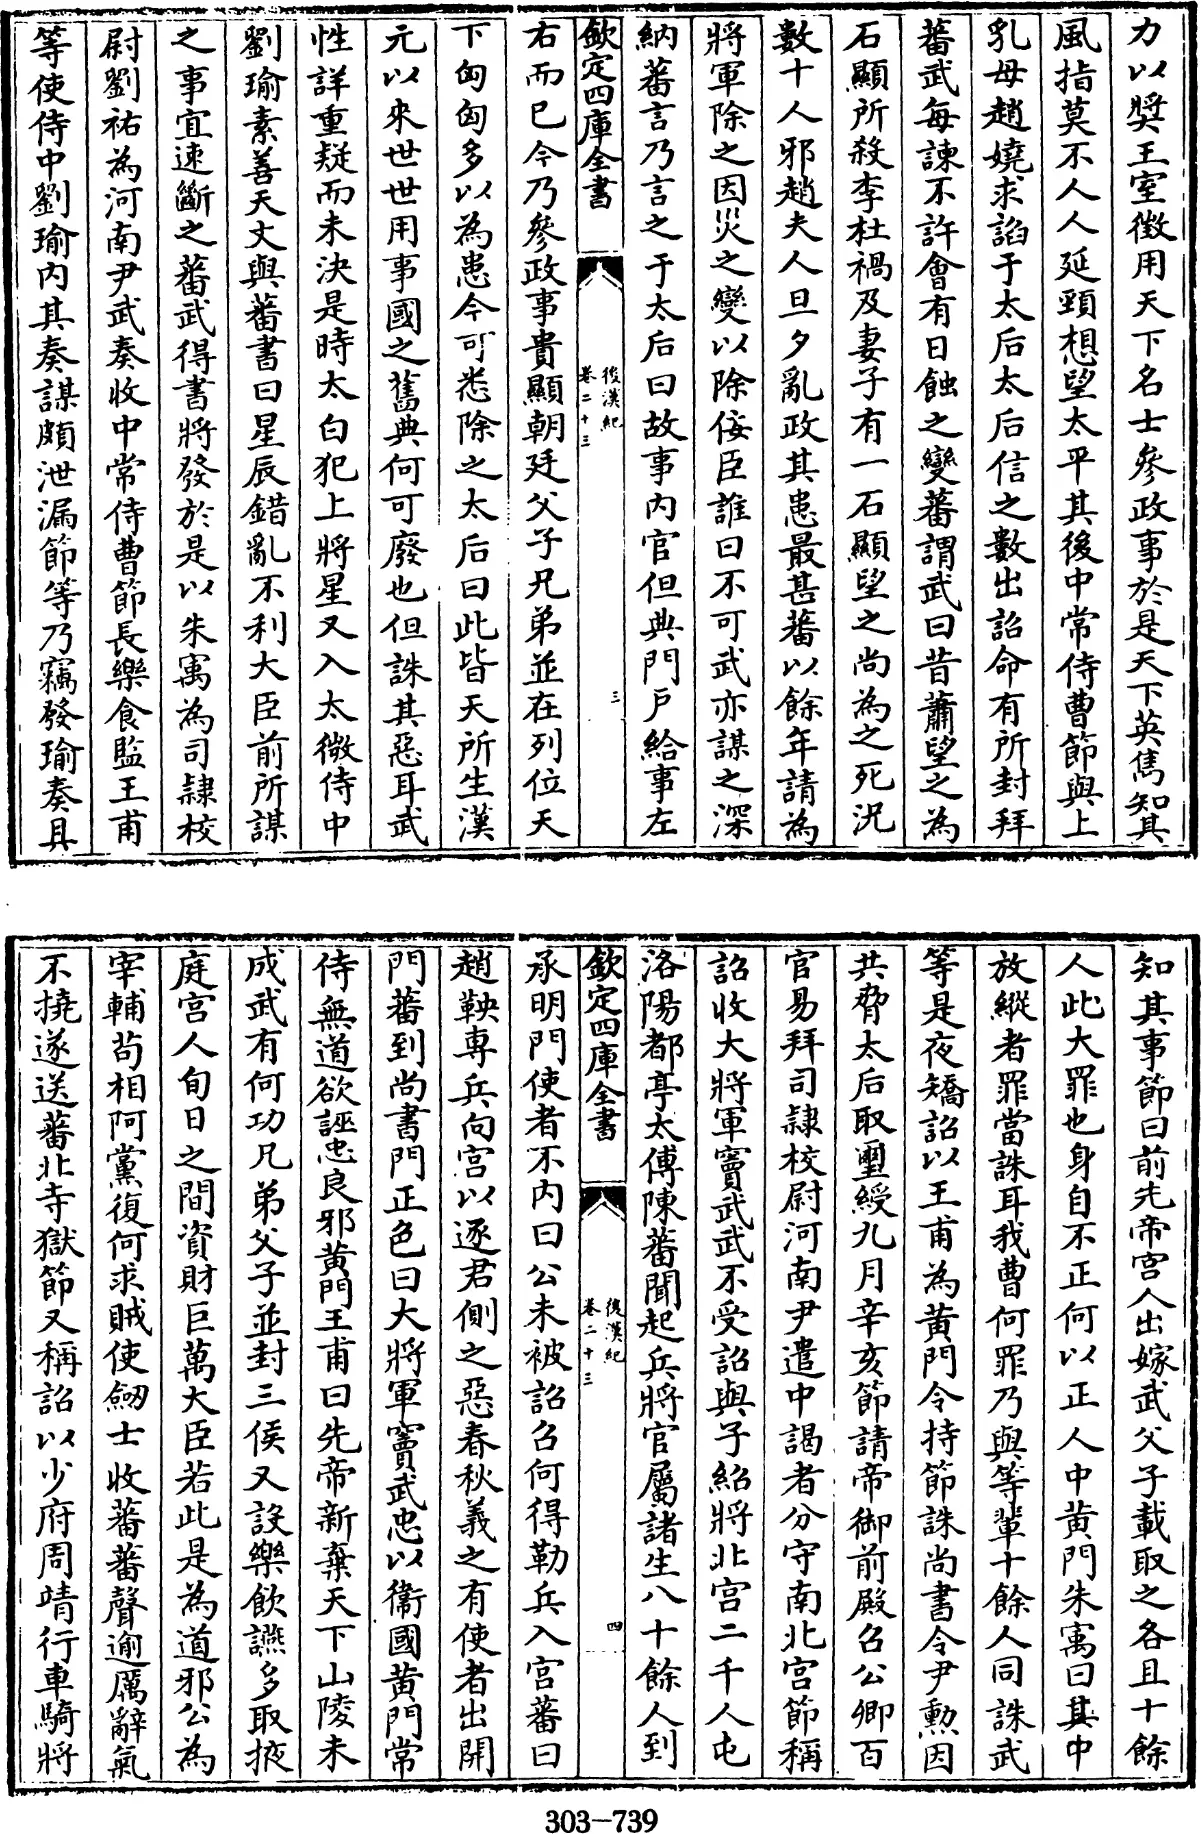 力以奬王室徴用天下名士參政事於是天下英雋知其
風指莫不人人延頸想望太平其後中常侍曹節與上
乳母趙嬈求諂于太后太后信之數出詔命有所封拜
蕃武每諫不許會有日蝕之變蕃謂武曰昔蕭望之為
石顯所殺李杜禍及妻子有一石顯望之尚為之死況
數十人邪趙夫人旦夕亂政其患最甚蕃以餘年請為
將軍除之因災之變以除佞臣誰曰不可武亦謀之深
納蕃言乃言之于太后曰故事内官但典門户給事左
欽定四庫全書
後漢紀
卷二十三
三
右而已今乃參政事貴顯朝廷父子兄弟並在列位天
下匈匈多以為患今可悉除之太后曰此皆天所生漢
元以來世世用事國之舊典何可廢也但誅其惡耳武
性詳重疑而未決是時太白犯上將星又入太微侍中
劉瑜素善天文與蕃書曰星辰錯亂不利大臣前所謀
之事宜速斷之蕃武得書將發於是以朱寓為司隷校
尉劉祐為河南尹武奏收中常侍曹節長樂食監王甫
等使侍中劉瑜内其奏謀頗泄漏節等乃竊發瑜奏具
知其事節曰前先帝宫人出嫁武父子載取之各且十餘
人此大罪也身自不正何以正人中黄門朱寓曰其中
放縱者罪當誅耳我曹何罪乃與等輩十餘人同誅武
等是夜矯詔以王甫為黄門令持節誅尚書令尹勲因
共脅太后取璽綬九月辛亥節請帝御前殿召公卿百
官易拜司隷校尉河南尹遣中謁者分守南北宫節稱
詔收大將軍竇武武不受詔與子紹將北宫二千人屯
洛陽都亭太傅陳蕃聞起兵將官屬諸生八十餘人到
欽定四庫全書
後漢紀
卷二十三
四
承明門使者不内曰公未被詔召何得勒兵入宫蕃曰
趙鞅專兵向宫以逐君側之惡春秋義之有使者出開
門蕃到尚書門正色曰大將軍竇武忠以衞國黄門常
侍無道欲誣忠良邪黄門王甫曰先帝新棄天下山陵未
成武有何功兄弟父子並封三侯又設樂飲讌多取掖
庭宫人旬日之間資財巨萬大臣若此是為道邪公為
宰輔苟相阿黨復何求賊使劒士收蕃蕃聲逾厲辭氣
不撓遂送蕃北寺獄節又稱詔以少府周靖行車騎將
303-739